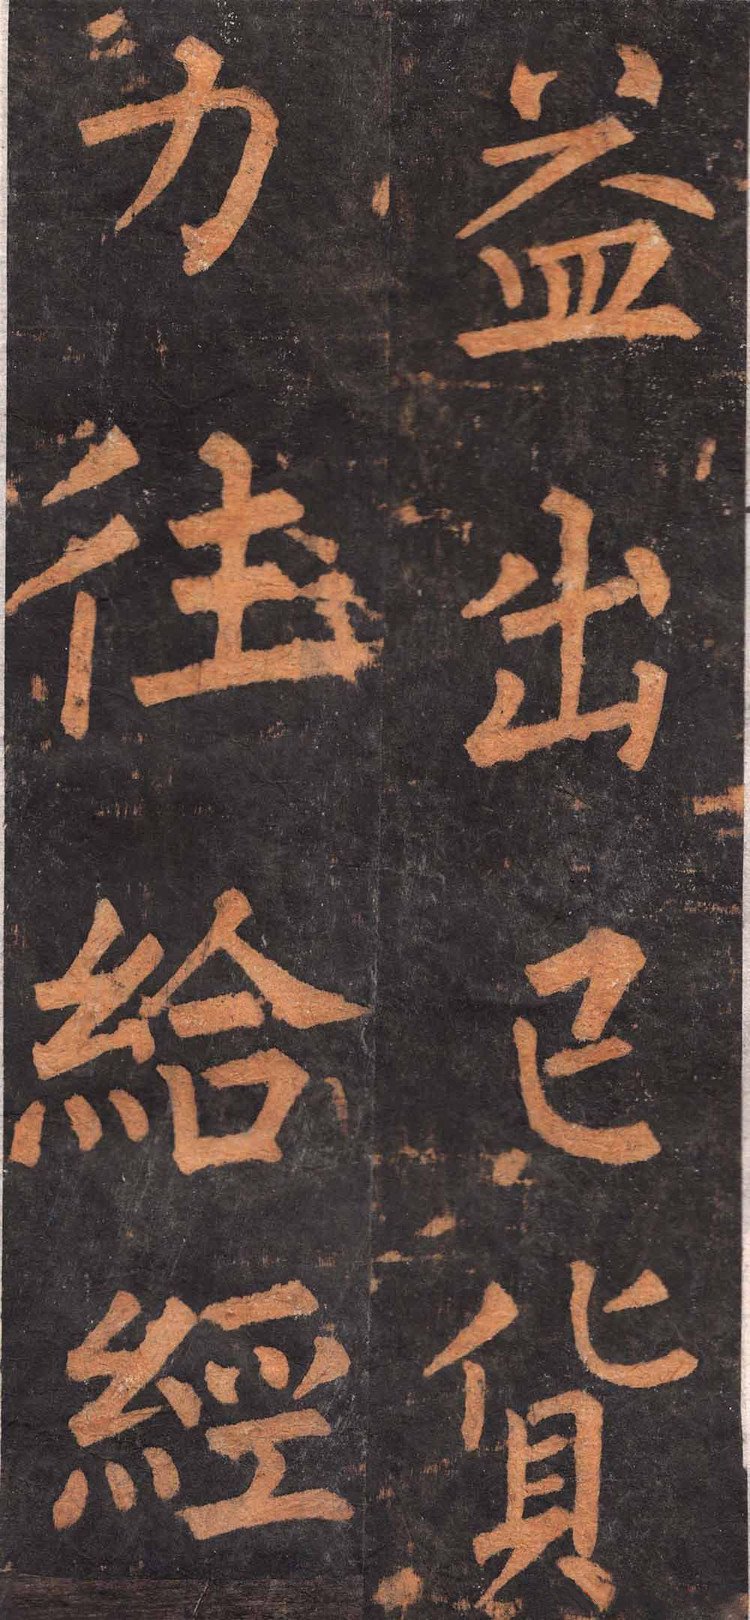 益出己貨
力往給經